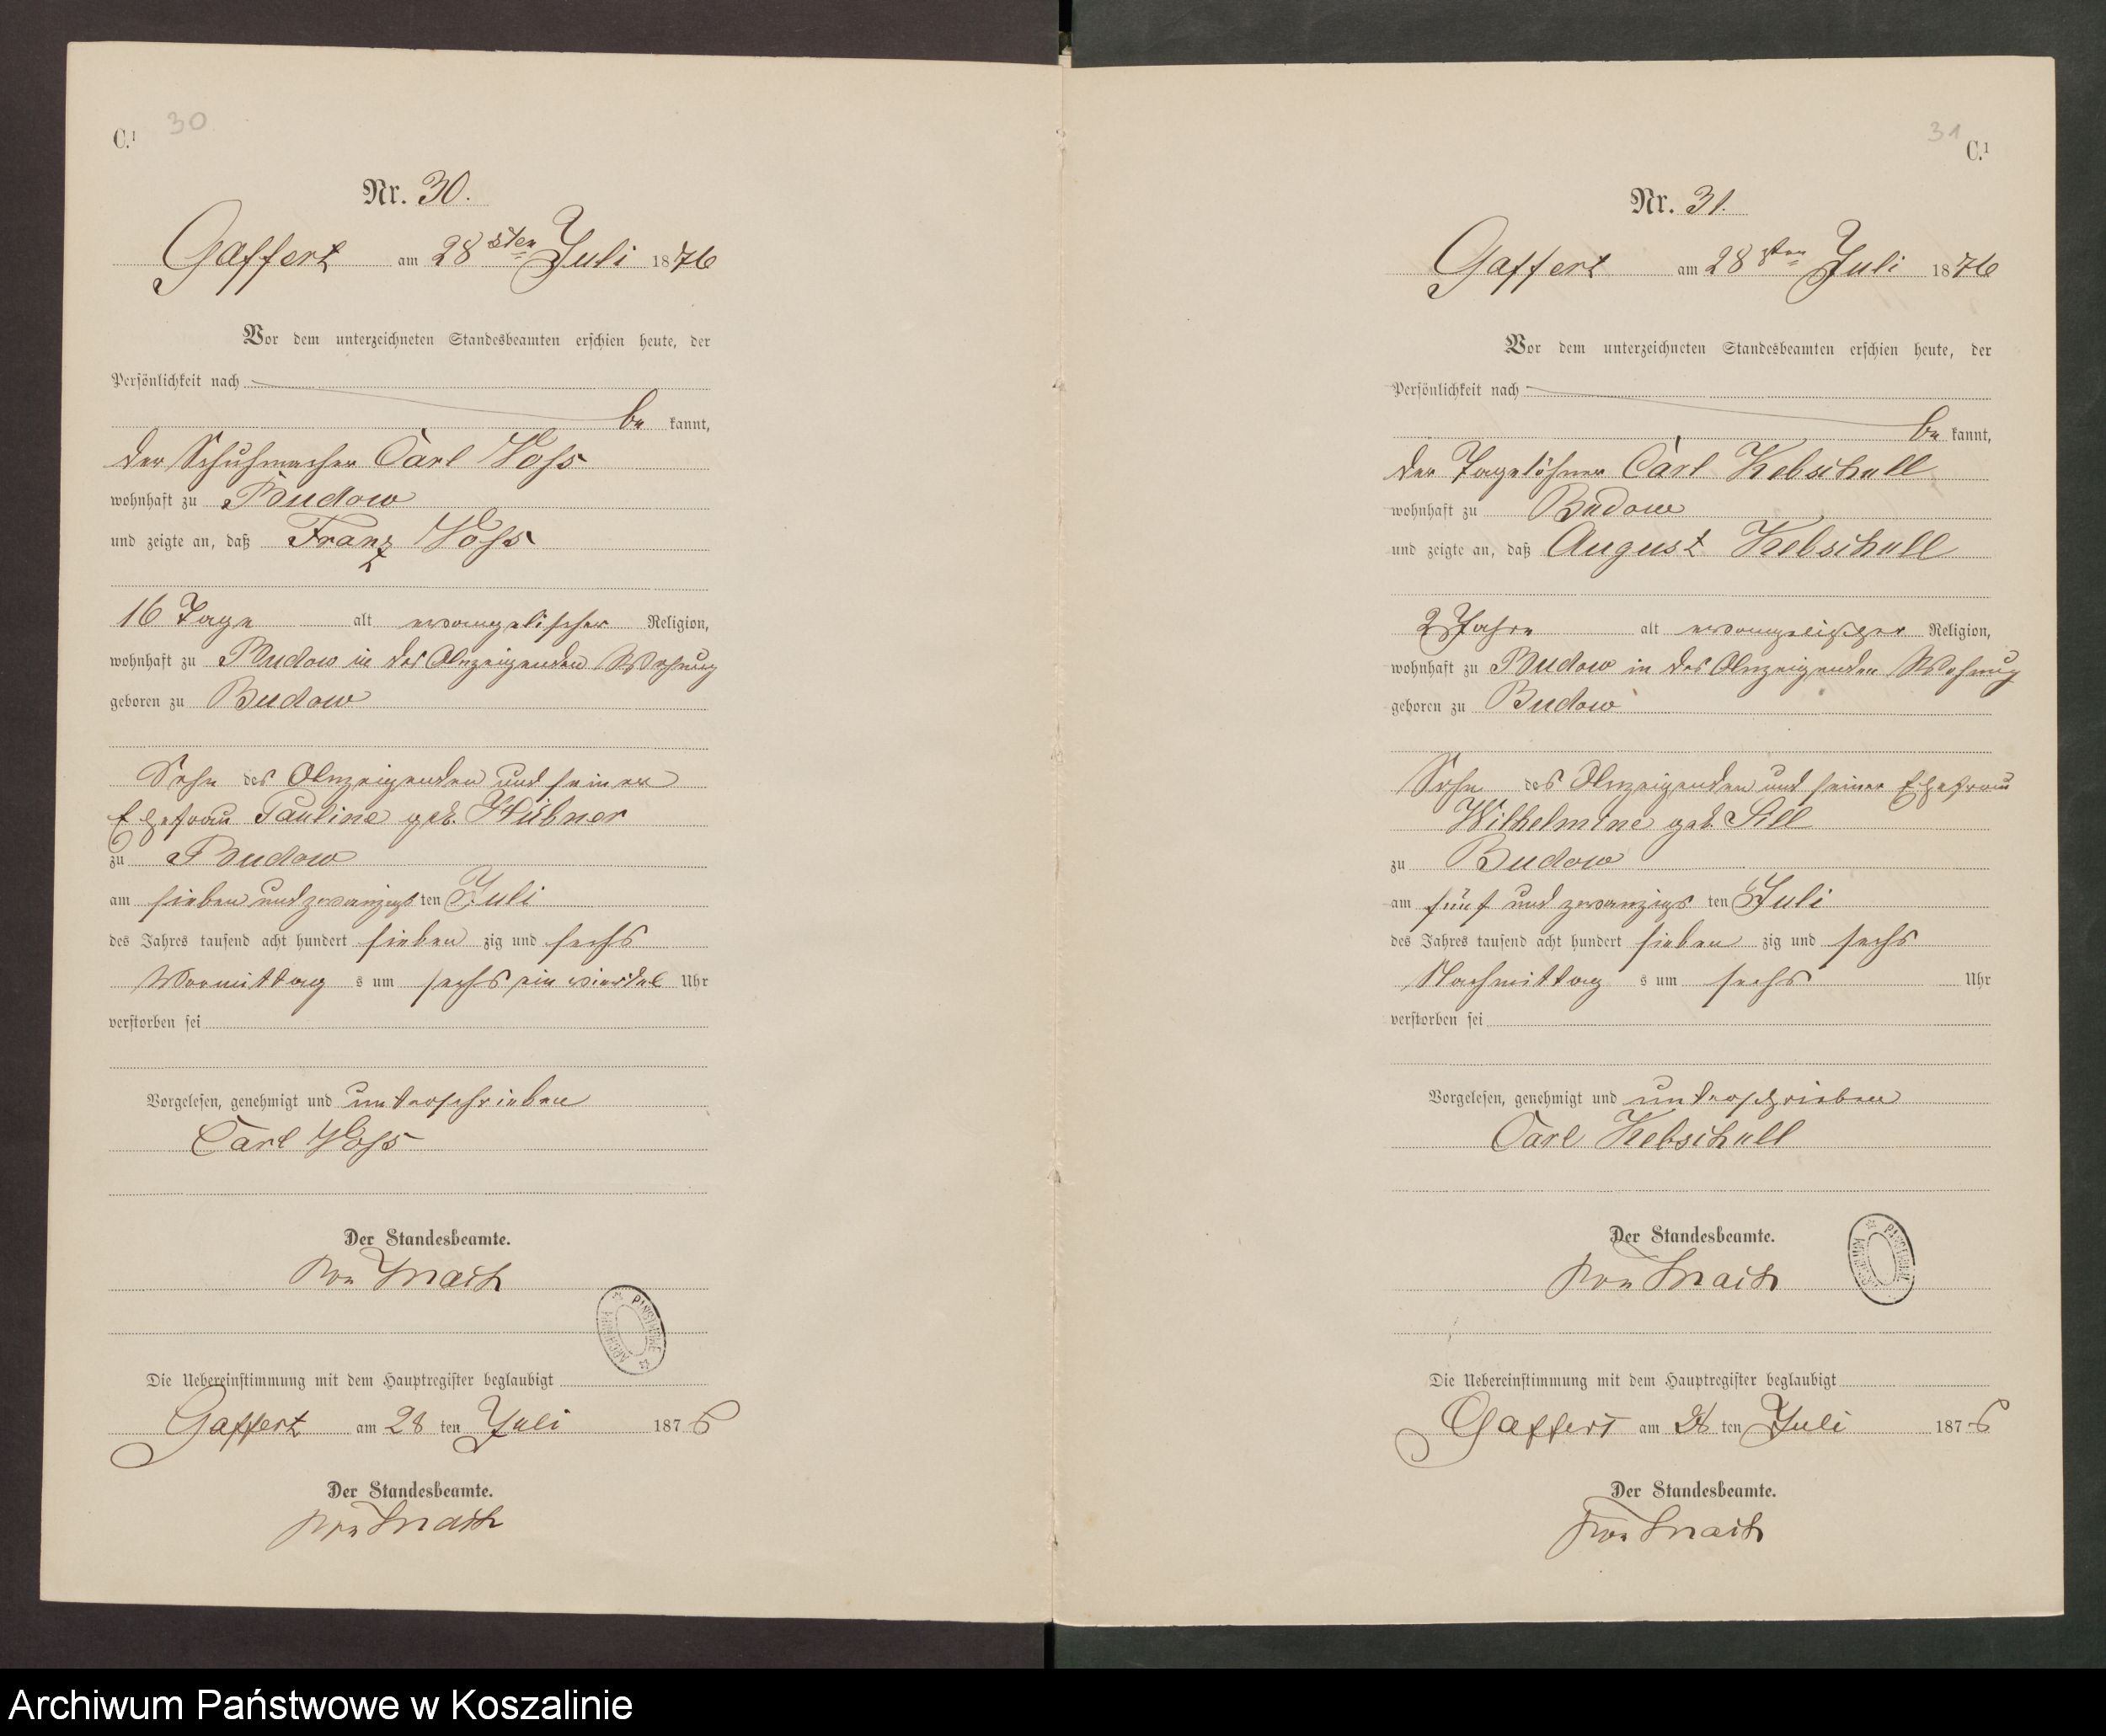 C.¹ 30
Nr. 30.
Gaffert am 28sten Juli 1876
Vor dem unterzeichneten Standesbeamten erschien heute, der
Persönlichkeit nach
be kannt,
der Schuhmacher Carl Voss
wohnhaft zu Budow
und zeigte an, daß Franz Voss
16 Tage alt evangelischer Religion,
wohnhaft zu Budow in des Anzeigenden Wohnung
geboren zu Budow
Sohn des Anzeigenden und seiner
Ehefrau Pauline geb. Hübner
zu Budow
am sieben und zwanzigs ten Juli
des Jahres tausend acht hundert sieben zig und sechs
Vormittag s um sechs ein viertel Uhr
verstorben sei
Vorgelesen, genehmigt und unterschrieben
Carl Voss
Der Standesbeamte.
von
Die Uebereinstimmung mit dem Hauptregister beglaubigt
Gaffert am 28 ten Juli 1876
Der Standesbeamte.
von
PAŃSTWOWE ARCHIWUM
31 C.¹
Nr. 31.
Gaffert am 28sten Juli 1876
Vor dem unterzeichneten Standesbeamten erschien heute, der
Persönlichkeit nach
be kannt,
der Tagelöhner Carl Kebschull
wohnhaft zu Budow
und zeigte an, daß August Kebschull
2 Jahre alt evangelischer Religion,
wohnhaft zu Budow in des Anzeigenden Wohnung
geboren zu Budow
Sohn des Anzeigenden und seiner Ehefrau
Wilhelmine geb. Sill
zu Budow
am fünf und zwanzigs ten Juli
des Jahres tausend acht hundert sieben zig und sechs
Nachmittag s um sechs Uhr
verstorben sei
Vorgelesen, genehmigt und unterschrieben
Carl Kebschull
Der Standesbeamte.
von
PAŃSTWOWE ARCHIWUM
Die Uebereinstimmung mit dem Hauptregister beglaubigt
Gaffert am 28 ten Juli 1876
Der Standesbeamte.
von
Archiwum Państwowe w Koszalinie